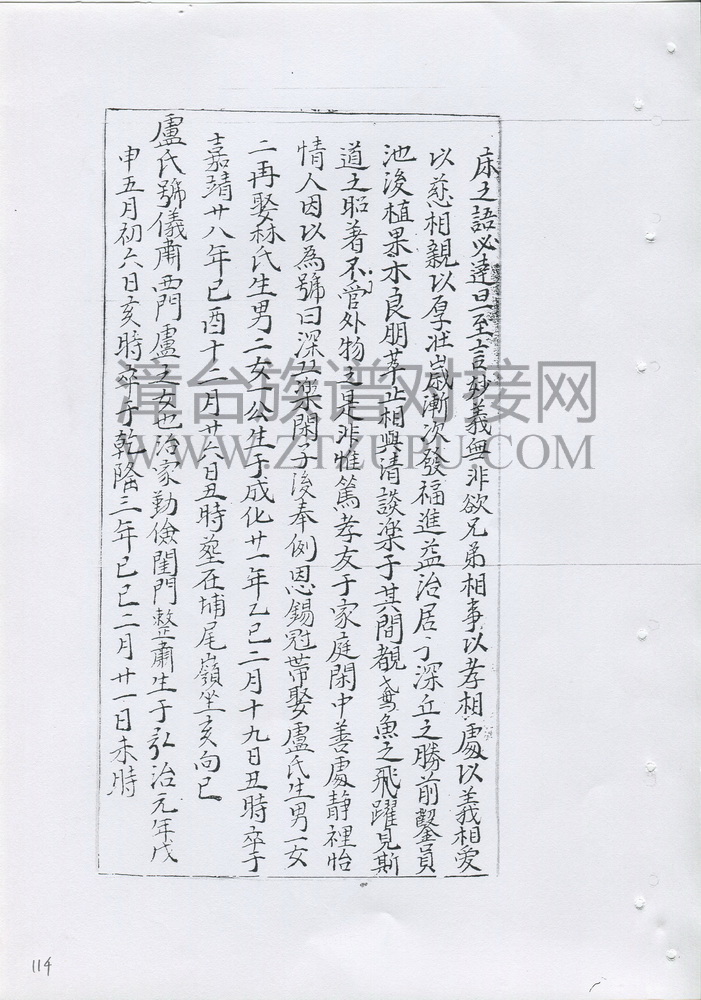 床之語必達旦至言妙義無非欲兄弟相事以孝相處以義相愛
以慈相親以厚壯歲漸次發福進益治居于深丘之勝前鑿員
池後植果木良朋萃止相與清談楽于其間觀鳶魚之飛躍見斯
道之昭著不管外物之是非惟篤孝友于家庭閑中善處靜裡怡
情人因以為號曰深丘樂閑子後奉例恩錫冠帶娶盧氏生男一女
二再娶林氏生男二女一公生于成化廿一年乙巳二月十九日丑時卒于
嘉靖廿八年己酉十二月廿六日丑時塟在埔尾嶺坐亥向巳
盧氏號儀肅西門盧之女也治家勤儉閨門整肅生于弘治元年戊
申五月初六日亥時卒于乾隆三年己巳二月廿一日未時
漳台族谱对接网
WWW.ZTZUPU.COM
114